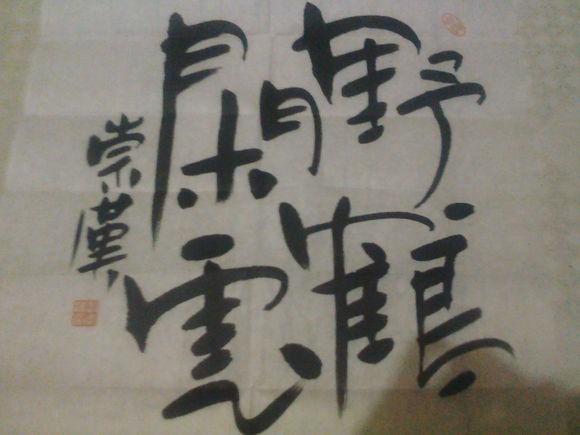 野鶴
閑雲
崇漢